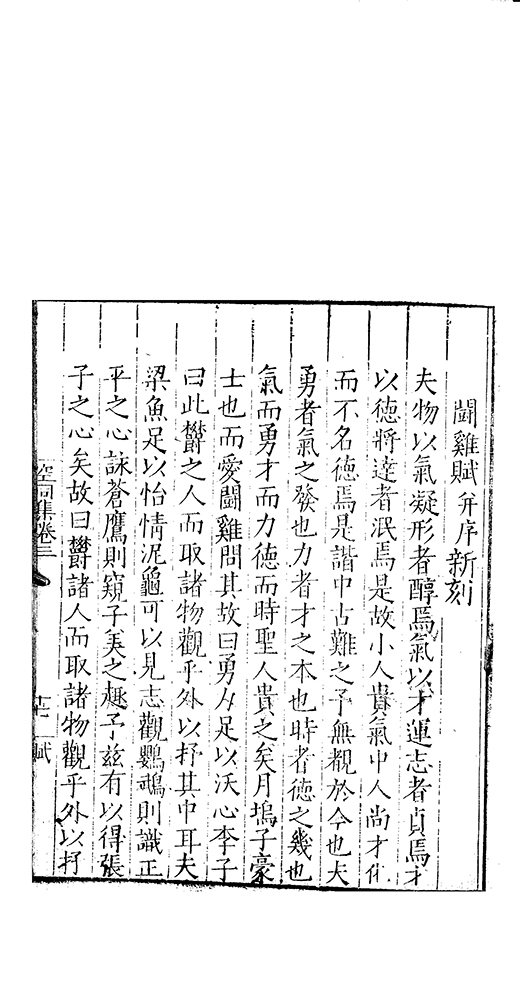 鬬雞賦并序新刻
夫物以氣凝形者醇焉氣以才運志者貞焉才
以德將達者泯焉是故小人貴氣中人尚才化
而不名德焉是諧中古難之予無覩於今也夫
勇者氣之發也力者才之本也時者德之幾也
氣而勇才而力德而時聖人貴之矣月塢子豪
士也而愛鬬雞問其故曰勇力足以沃心李子
曰此欝之人而取諸物觀乎外以抒其中耳夫
梁魚足以怡情泥龜可以見志觀鸚鵡則識正
平之心詠蒼鷹則窺子美之趣予兹有以得張
子之心矣故曰欝諸人而取諸物觀乎外以抒
空同集卷三
十一
賦